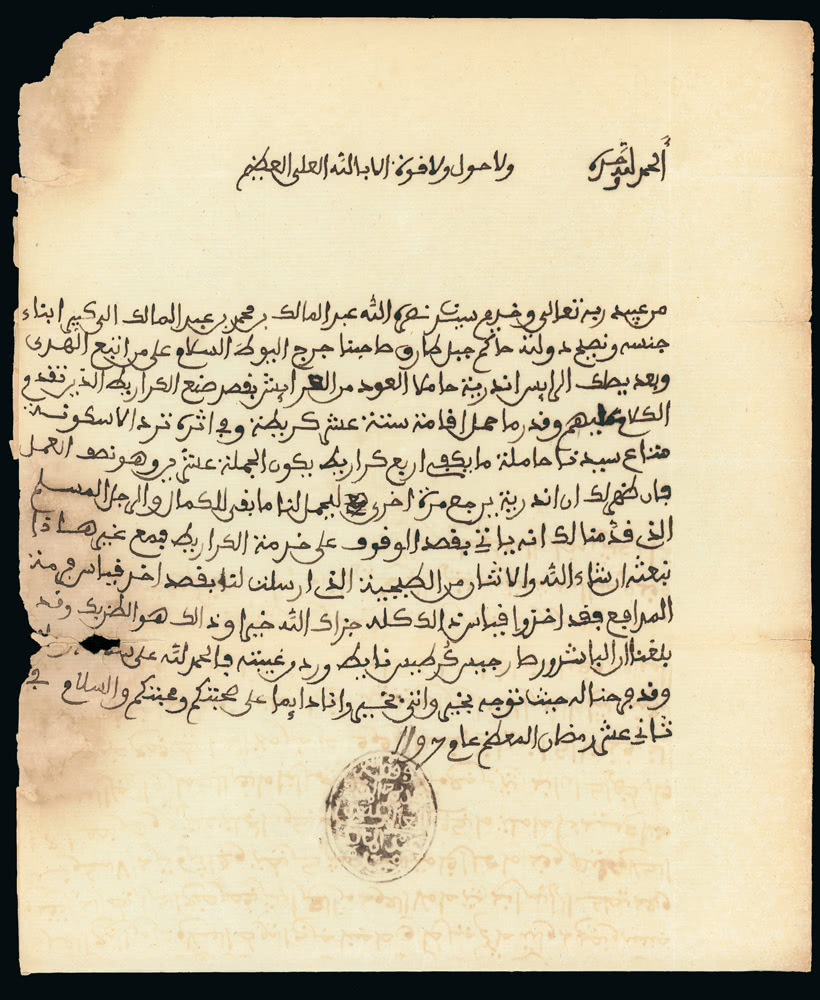 الحمد لله وحده ولا حول ولا قوة الا بالله العلي العظيم
من عبد ربه تعالى وخديم سيده نصره الله عبد المالك بن محمد بن عبد المالك الى كبير ابناء
جنسه ونصيح دولته حاكم جبل طارق صاحبنا جرج البوط السلام على من اتبع الهدى
وبعد يصلك الرايس اندرية حاملا العود من العرايش بقصد صنع الكراريط الذي تقدم
الكلام عليهم وقدر ما حمل اقامة ستة عشر كريطة وفي اثره ترد الاسكونة
متاع سيدنا حاملة ما يكفي اربع كراريط يكون الجملة عشرين وهو نصف العمل
فان ظهر لك ان اندرية يرجع مرة اخرى ليحمل لنا ما بقى للكمال والرجل المسلم
الذي قدمنا لك انه ياتي بقصد الوقوف على خدمة الكراريط فمع غير هاذا
نبعثه ان شاء الله والاثنان من الطبجية الذي ارسلت لنا بقصد اخذ قياس فرمة
المدافع فقد اخذوا قياس ذالك كله جزاك الله خيرا وذالك هو الظن بك وقد
بلغنا ان الباشدور صار جيبس كرطيس نايط ورد وغيبته فالحمد لله على
وقد فرحنا له حيث توجه بخير واتى بخير وانا دايما على صحبتكم ومحبتكم والسلام في
ثاني عشر رمضان المعظم عام 1197